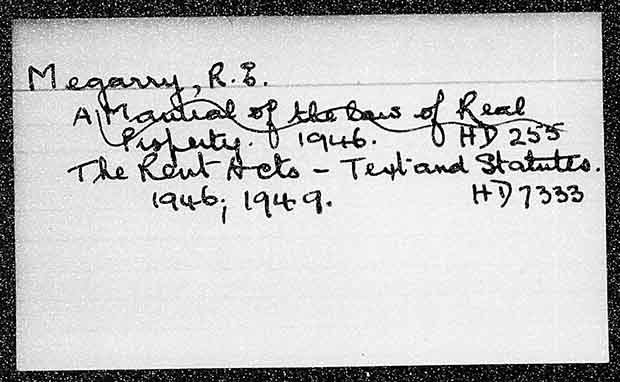 Megarry, R.E.
A Manual of the Law of Real
Property. 1946. HD 255
The Rent Acts - Text and Statutes.
1946; 1949. HD 7333